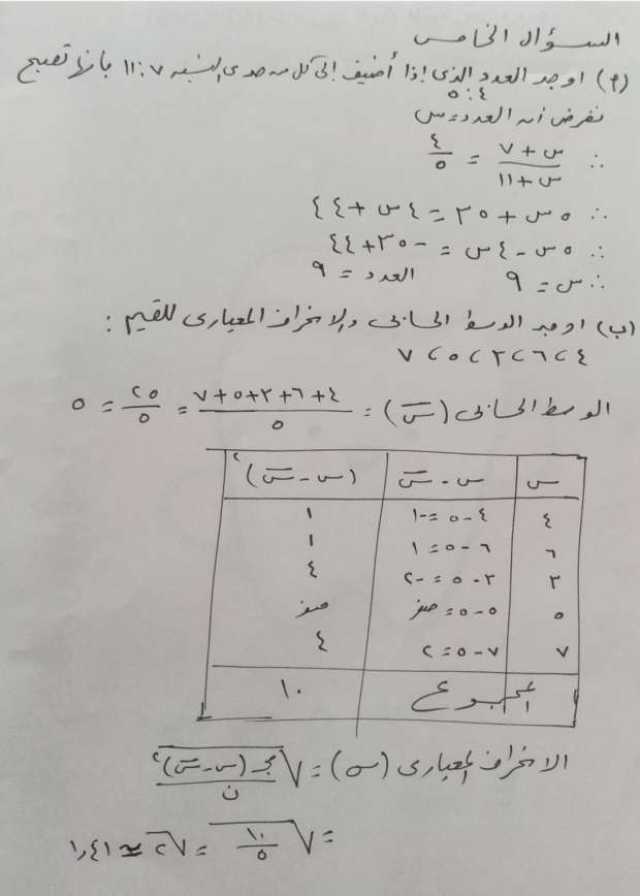 السؤال الخامس
(أ) اوجد العدد الذى إذا أضيف إلى كل من حدى النسبه ٧ : ١١ فإنها تصبح
٤ : ٥
نفرض أن العدد = س
∴ (س + ٧) / (س + ١١) = ٤ / ٥
∴ ٥س + ٣٥ = ٤س + ٤٤
∴ ٥س - ٤س = -٣٥ + ٤٤
∴ س = ٩ العدد = ٩
(ب) اوجد الوسط الحسابى والانحراف المعيارى للقيم :
٤ ، ٦ ، ٣ ، ٥ ، ٧
الوسط الحسابى (س̅) = (٤ + ٦ + ٣ + ٥ + ٧) / ٥ = ٢٥ / ٥ = ٥
س | س - س̅ | (س - س̅)²
٤ | ٤ - ٥ = -١ | ١
٦ | ٦ - ٥ = ١ | ١
٣ | ٣ - ٥ = -٢ | ٤
٥ | ٥ - ٥ = صفر | صفر
٧ | ٧ - ٥ = ٢ | ٤
المجموع | ١٠
الانحراف المعيارى (σ) = √(مجـ (س - س̅)² / ن)
= √(١٠ / ٥) = √٢ ≃ ١,٤١